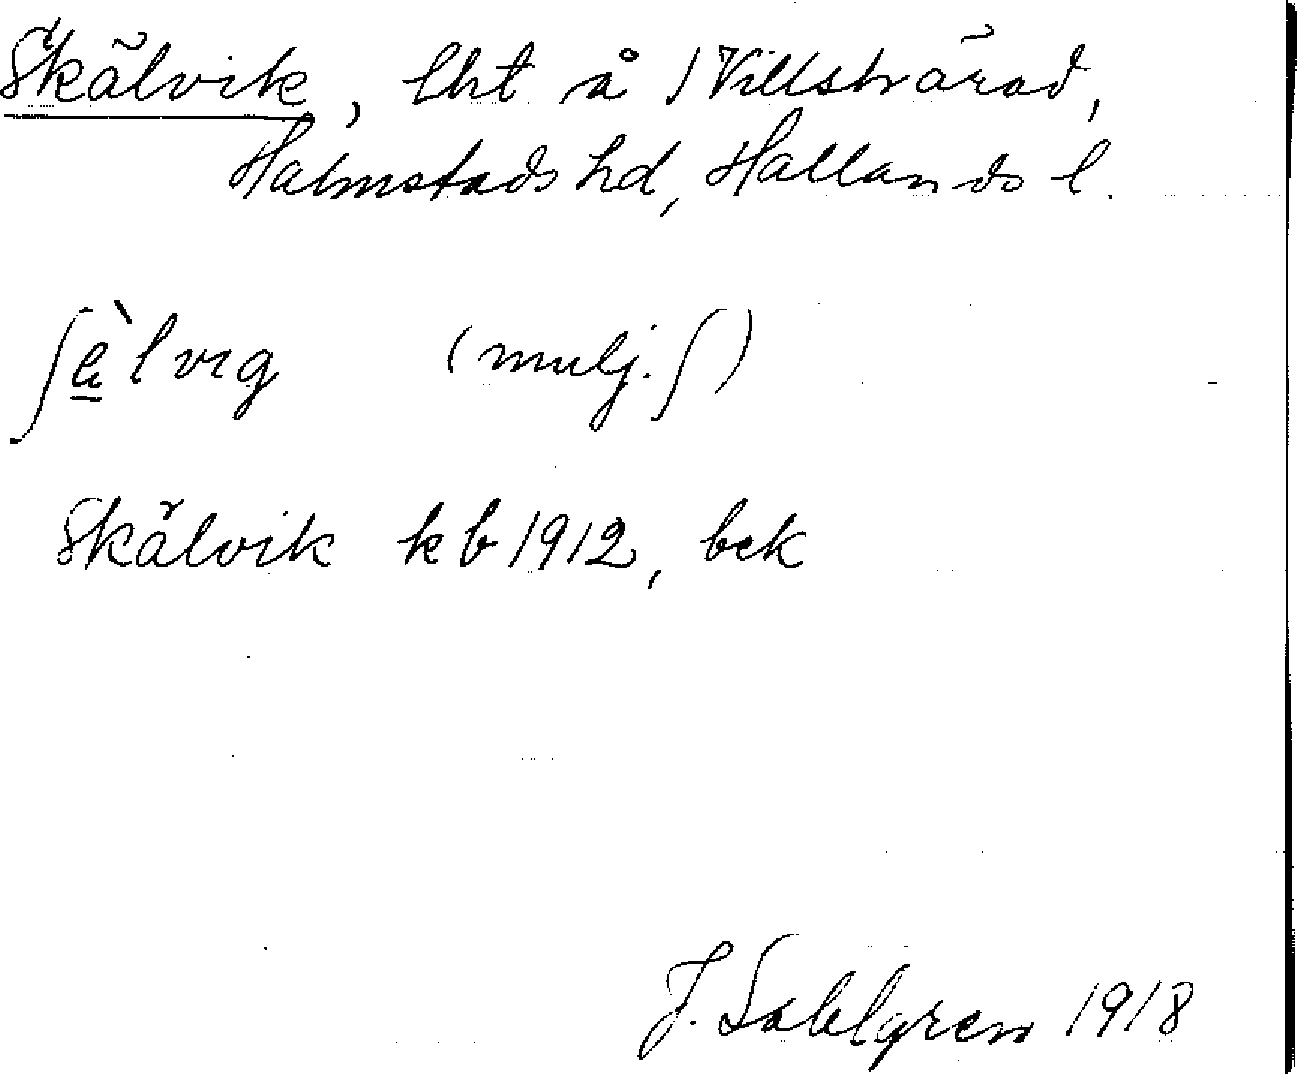 Skälvik, lht å 1 Villshärad,
Halmstads hd, Hallands l.
ʃæ̀lvıg (mulj. ʃ)
Skälvik kb 1912, bek
J. Sahlgren 1918